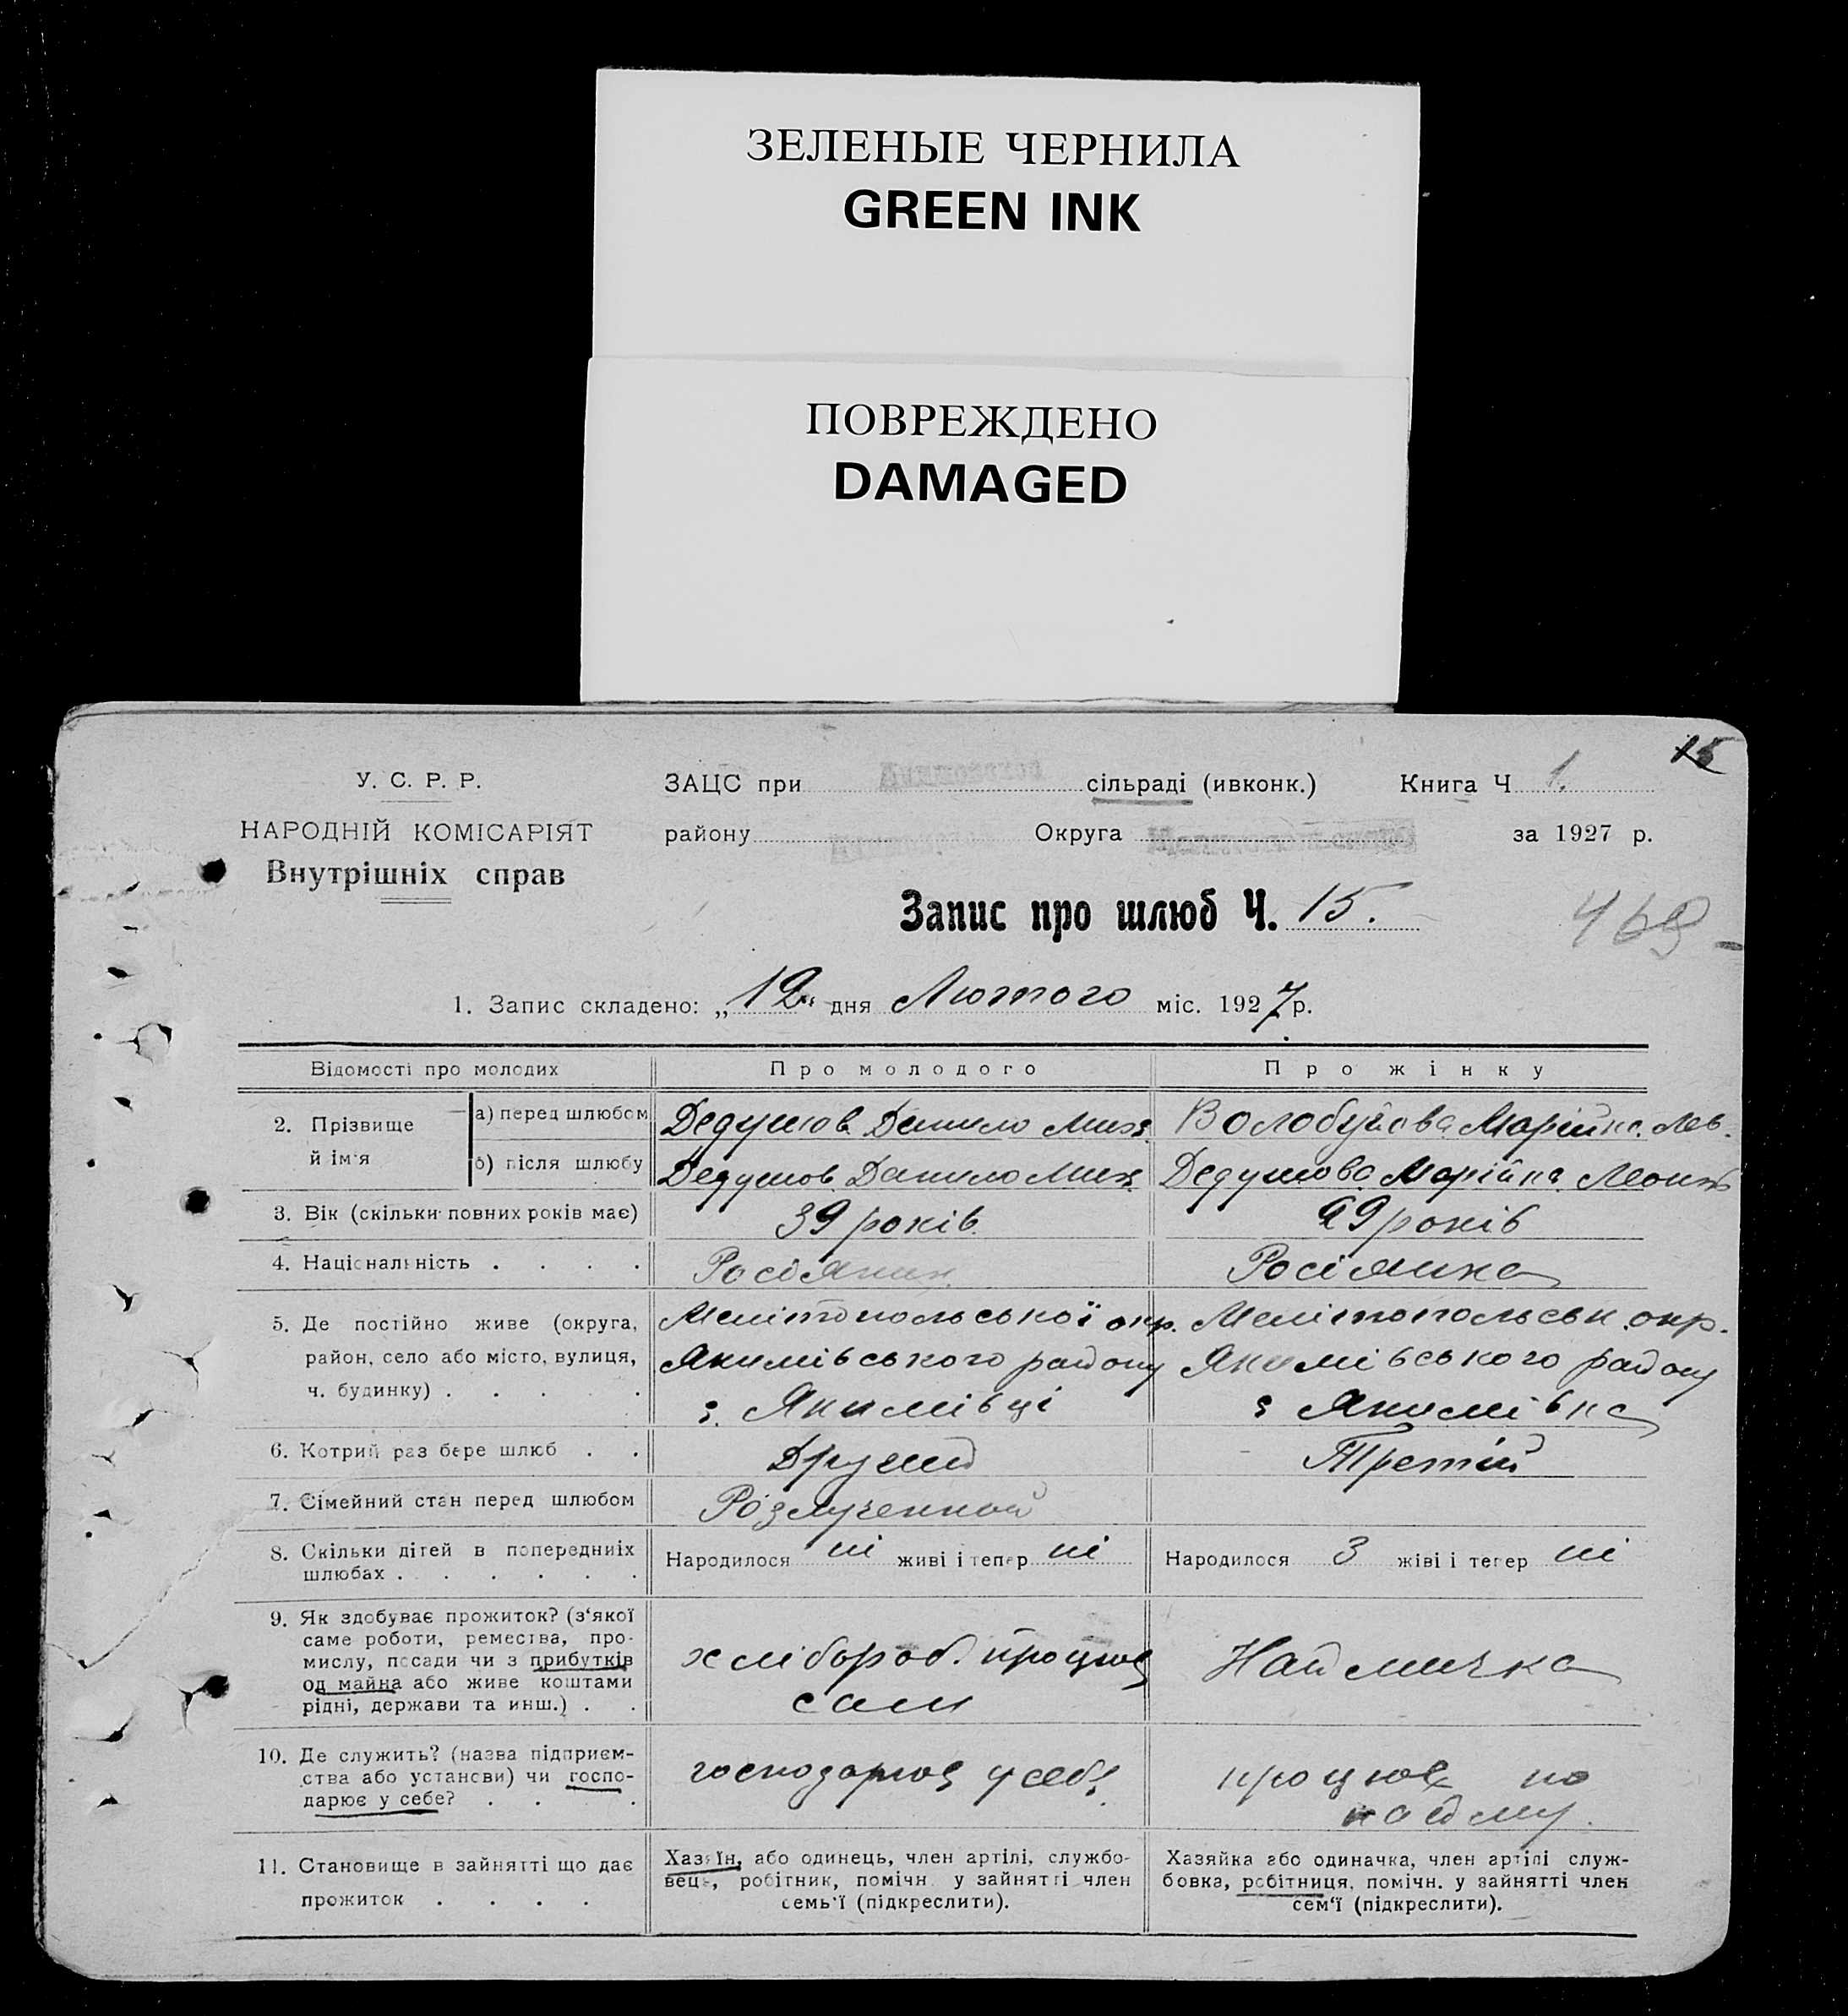 ЗЕЛЕНЫЕ ЧЕРНИЛА
GREEN INK
ПОВРЕЖДЕНО
DAMAGED
У. С. Р. Р.
НАРОДНІЙ КОМІСАРІЯТ
Внутрішніх справ
ЗАЦС при сільраді (ивконк.) Книга Ч 1.
району Округа за 1927 р.
Запис про шлюб Ч. 15.
1. Запис складено: „12" дня Лютого міс. 1927 р.
Відомості про молодих Про молодого Про жінку
2. Прізвище й ім'я
а) перед шлюбом Дедушов Данило Мих. Волобуйова Марійка Лев.
б) після шлюбу Дедушов Данило Мих. Дедушова Марійка
3. Вік (скільки повних років має) 39 років 49 років
4. Національність . . . . Росіянин Росіянка
5. Де постійно живе (округа, Мелітопольської окр. Мелітопольськ. окр.
район, село або місто, вулиця, Якимівського району Якимівського району
ч. будинку) . . . . . с. Якимівці с Якимівка
6. Котрий раз бере шлюб . . Другий Третій
7. Сімейний стан перед шлюбом Розлученной
8. Скільки дітей в попередніх Народилося ні живі і тепер ні Народилося 3 жіві і тепер ні
шлюбах . . . . . .
9. Як здобуває прожиток? (з'якої
саме роботи, ремества, про-
мислу, посади чи з прибутків хлібороб. працює Наймичка
од майна або живе коштами сам
рідні, держави та инш.) . .
10. Де служить? (назва підприєм-
ства або установи) чи госпо- господарює у себе працює по
дарює у себе? . . . найму.
11. Становище в зайнятті що дає Хазяїн, або одинець, член артілі, службо- Хазяйка або одиначка, член артілі служ-
прожиток . . . . вець, робітник, помічн. у зайнятті член бовка, робітниця, помічн. у зайнятті член
семь'ї (підкреслити). сем'ї (підкреслити).